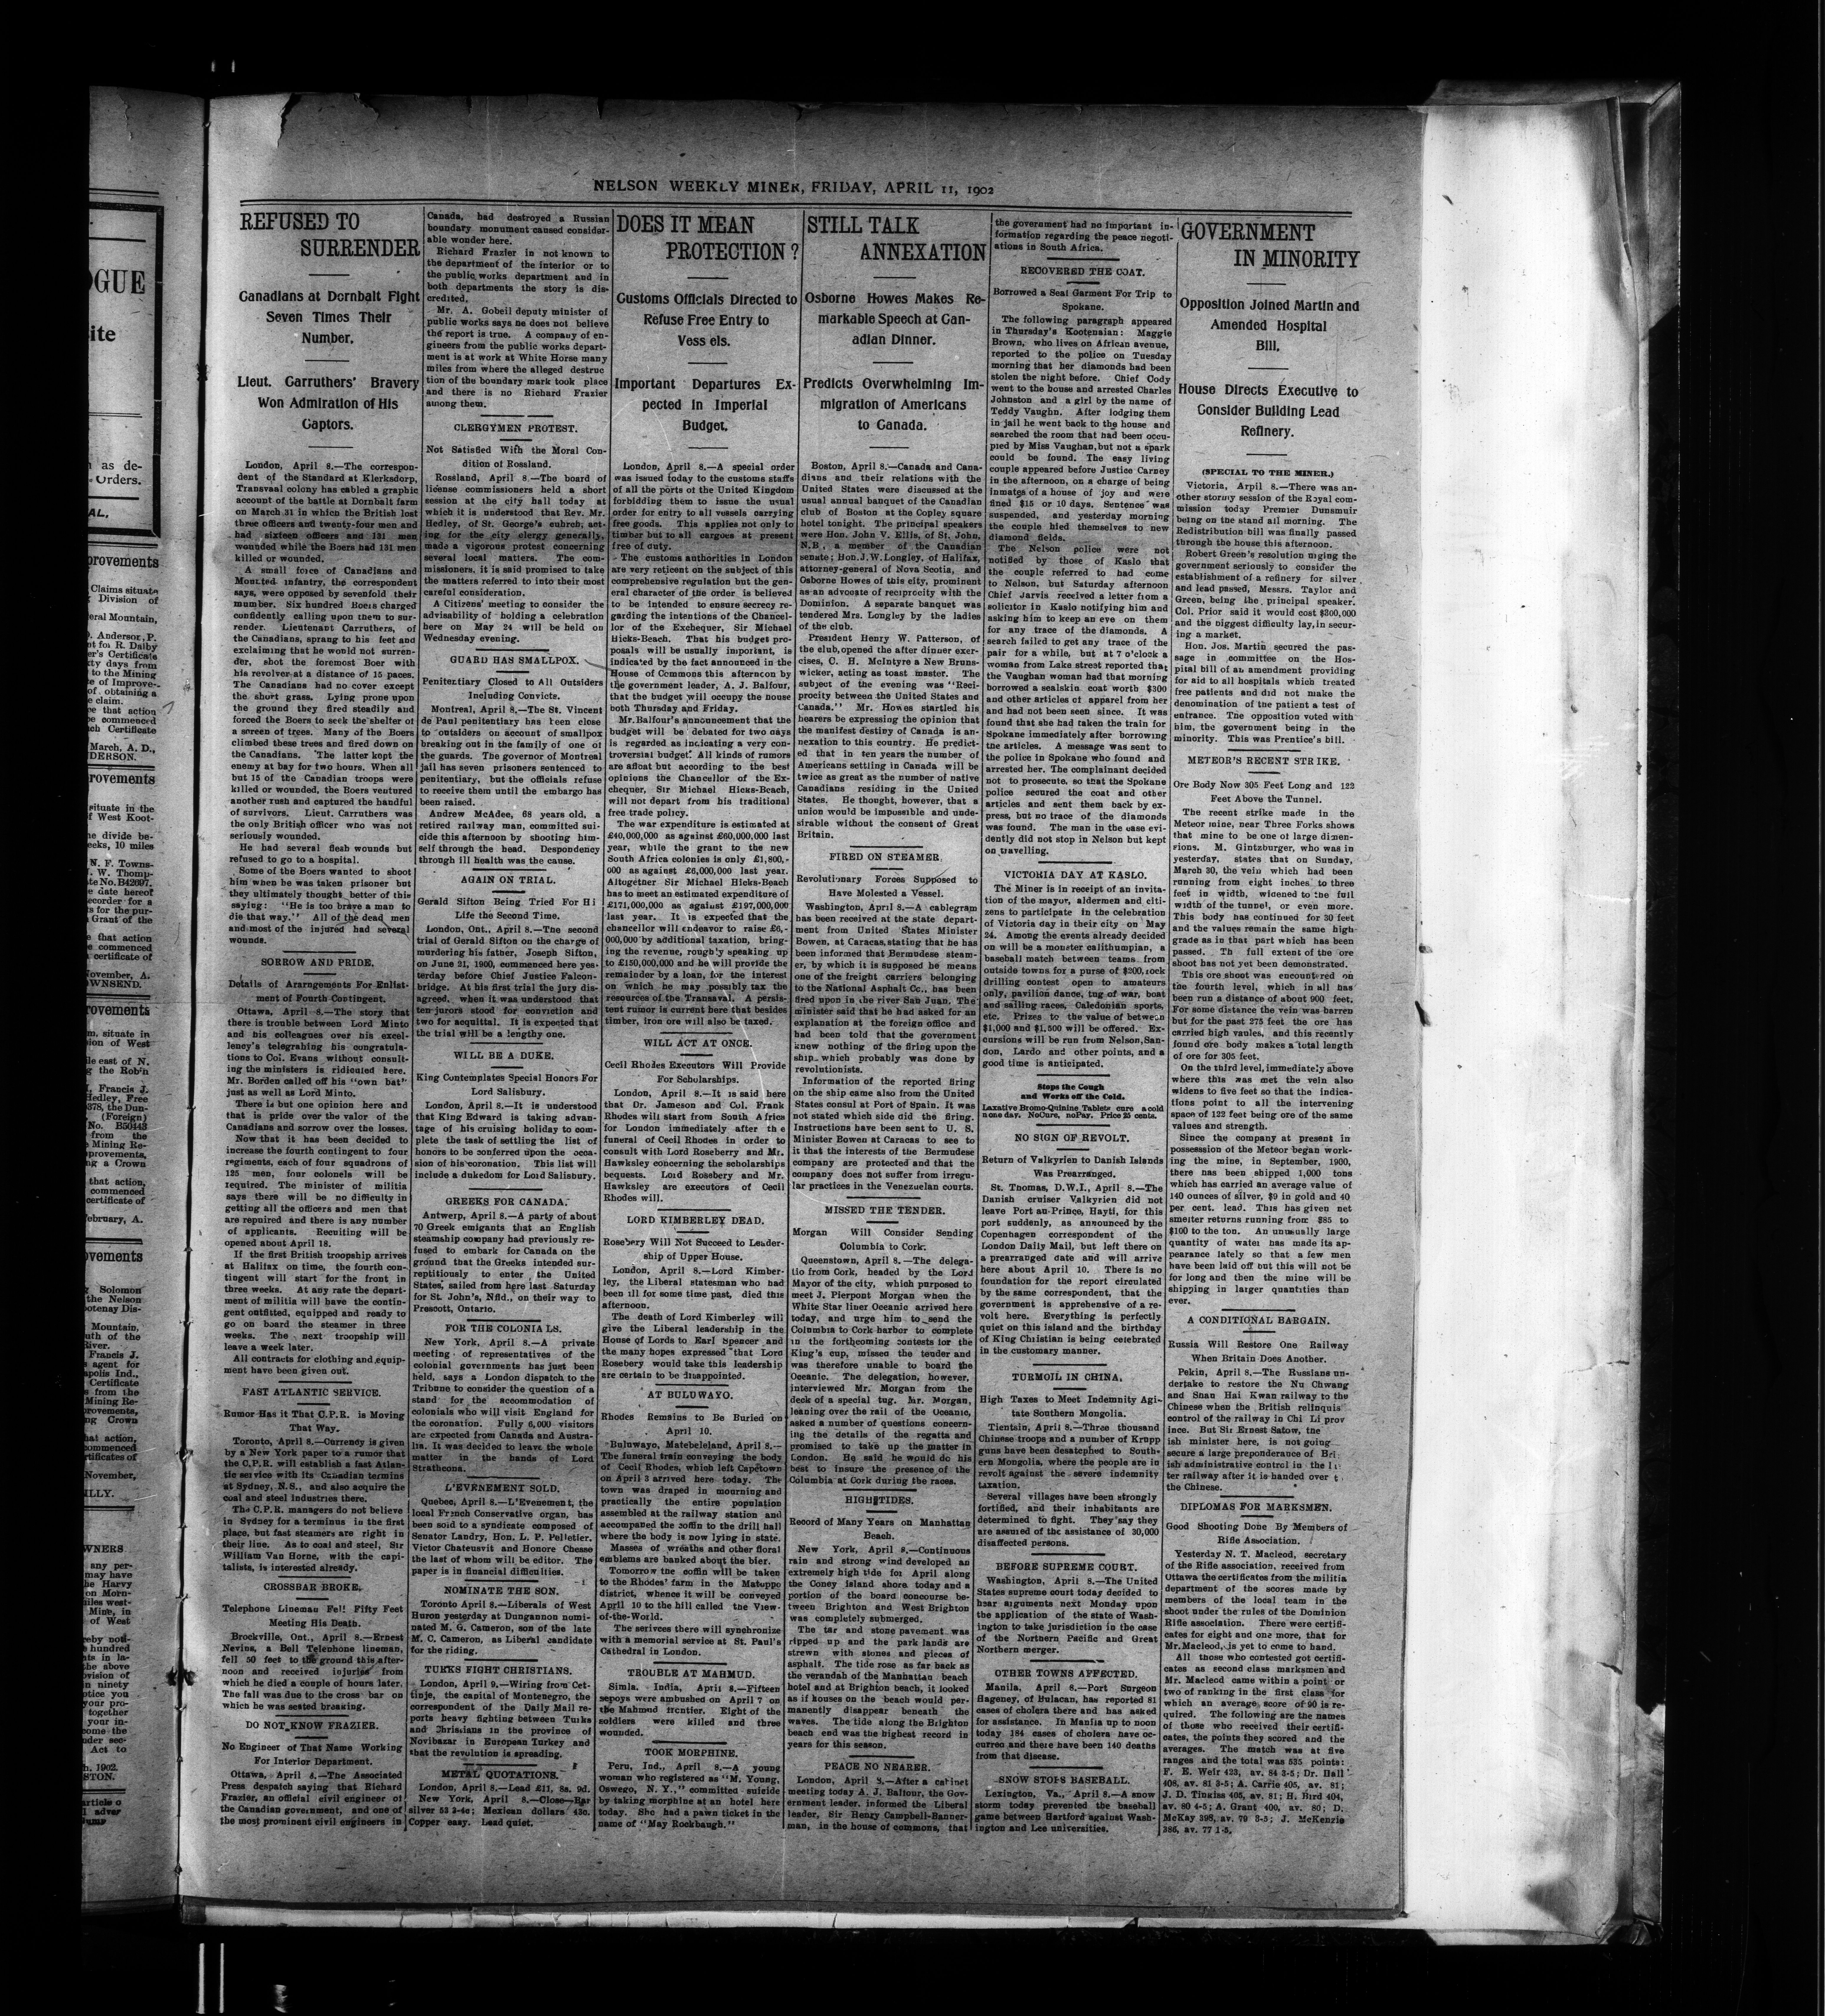 NELSON WEEKLY MINER, FRIDAY, APRIL 11, 1902
REFUSED TO
SURRENDER
Canadians at Dornbalt Fight
Seven Times Their
Number.
Lieut. Carruthers' Bravery
Won Admiration of His
Captors.
London, April 8.—The correspon-
dent of the Standard at Klerksdorp,
Transvaal colony has cabled a graphic
account of the battle at Dornbalt farm
on March 31 in which the British lost
three officers and twenty-four men and
had sixteen officers and 131 men
wounded while the Boers had 131 men
killed or wounded.
A small force of Canadians and
Mounted infantry, the correspondent
says, were opposed by sevenfold their
number. Six hundred Boers charged
confidently calling upon them to sur-
render. Lieutenant Carruthers, of
the Canadians, sprang to his feet and
exclaiming that he would not surren-
der, shot the foremost Boer with
his revolver at a distance of 15 paces.
The Canadians had no cover except
the short grass. Lying prone upon
the ground they fired steadily and
forced the Boers to seek the shelter of
a screen of trees. Many of the Boers
climbed these trees and fired down on
the Canadians. The latter kept the
enemy at bay for two hours. When all
but 15 of the Canadian troops were
killed or wounded, the Boers ventured
another rush and captured the handful
of survivors. Lieut. Carruthers was
the only British officer who was not
seriously wounded.
He had several flesh wounds but
refused to go to a hospital.
Some of the Boers wanted to shoot
him when he was taken prisoner but
they ultimately thought better of this
saying: "He is too brave a man to
die that way." All of the dead men
and most of the injured had several
wounds.
SORROW AND PRIDE.
Details of Ararngements For Enlist-
ment of Fourth Contingent.
Ottawa, April 8.—The story that
there is trouble between Lord Minto
and his colleagues over his excel-
lency's telegrahing his congratula-
tions to Col. Evans without consult-
ing the ministers is ridiculed here.
Mr. Borden called off his "own bat"
just as well as Lord Minto.
There is but one opinion here and
that is pride over the valor of the
Canadians and sorrow over the losses.
Now that it has been decided to
increase the fourth contingent to four
regiments, each of four squadrons of
125 men, four colonels will be
required. The minister of militia
says there will be no difficulty in
getting all the officers and men that
are repuired and there is any number
of applicants. Recruiting will be
opened about April 18.
If the first British troopship arrives
at Halifax on time, the fourth con-
tingent will start for the front in
three weeks. At any rate the depart-
ment of militia will have the contin-
gent outfited, equipped and ready to
go on board the steamer in three
weeks. The next troopship will
leave a week later.
All contracts for clothing and equip-
ment have been given out.
FAST ATLANTIC SERVICE.
Rumor Has it That C.P.R. is Moving
That Way.
Toronto, April 8.—Currency is given
by a New York paper to a rumor that
the C.P.R. will establish a fast Atlan-
tic service with its Canadian termins
at Sydney, N.S., and also acquire the
coal and steel industries there.
The C.P.R. managers do not believe
in Sydney for a terminus in the first
place, but fast steamers are right in
their line. As to coal and steel, Sir
William Van Horne, with the capi-
talists, is interested already.
CROSSBAR BROKE.
Telephone Lineman Fell Fifty Feet
Meeting His Death.
Brockville, Ont., April 8.—Ernest
Nevins, a Bell Telephone lineman,
fell 50 feet to the ground this after-
noon and received injuries from
which he died a couple of hours later.
The fall was due to the cross bar on
which he was seated breaking.
DO NOT KNOW FRAZIER.
No Engineer of That Name Working
For Interior Department.
Ottawa, April 8.—The Associated
Press despatch saying that Richard
Frazier, an official civil engineer of
the Canadian government, and one of
the most prominent civil engineers in
Canada, had destroyed a Russian
boundary monument caused consider-
able wonder here.
Richard Frazier in not known to
the department of the interior or to
the public works department and in
both departments the story is dis-
credited.
Mr. A. Gobeil deputy minister of
public works says he does not believe
the report is true. A company of en-
gineers from the public works depart-
ment is at work at White Horse many
miles from where the alleged destruc
tion of the boundary mark took place
and there is no Richard Frazier
among them.
CLERGYMEN PROTEST.
Not Satisfied With the Moral Con-
dition of Rossland.
Rossland, April 8.—The board of
license commissioners held a short
session at the city hall today at
which it is understood that Rev. Mr.
Hedley, of St. George's cuhrch, act-
ing for the city clergy generally,
made a vigorous protest concerning
several local matters. The com-
missioners, it is said promised to take
the matters referred to into their most
careful consideration.
A Citizens' meeting to consider the
advisability of holding a celebration
here on May 24 will be held on
Wednesday evening.
GUARD HAS SMALLPOX.
Penitentiary Closed to All Outsiders
Including Convicts.
Montreal, April 8.—The St. Vincent
de Paul penitentiary has been close
to outsiders on account of smallpox
breaking out in the family of one of
the guards. The governor of Montreal
jail has seven prisoners sentenced to
penitentiary, but the officials refuse
to receive them until the embargo has
been raised.
Andrew McAdee, 68 years old, a
retired railway man, committed sui-
cide this afternoon by shooting him-
self through the head. Despondency
through ill health was the cause.
AGAIN ON TRIAL.
Gerald Sifton Being Tried For Hi
Life the Second Time.
London, Ont., April 8.—The second
trial of Gerald Sifton on the charge of
murdering his father, Joseph Sifton,
on June 21, 1900, commenced here yes-
terday before Chief Justice Falcon-
bridge. At his first trial the jury dis-
agreed, when it was understood that
ten jurors stood for conviction and
two for acquittal. It is expected that
the trial will be a lengthy one.
WILL BE A DUKE.
King Contemplates Special Honors For
Lord Salisbury.
London, April 8.—It is understood
that King Edward is taking advan-
tage of his cruising holiday to com-
plete the task of settling the list of
honors to be conferred upon the occa-
sion of his coronation. This list will
include a dukedom for Lord Salisbury.
GREEKS FOR CANADA.
Antwerp, April 8.—A party of about
70 Greek emigants that an English
steamship company had previously re-
fused to embark for Canada on the
ground that the Greeks intended sur-
reptitiously to enter the United
States, sailed from here last Saturday
for St. John's, Nfld., on their way to
Prescott, Ontario.
FOR THE COLONIALS.
New York, April 8.—A private
meeting of representatives of the
colonial governments has just been
held, says a London dispatch to the
Tribune to consider the question of a
stand for the accommodation of
colonials who will visit England for
the coronation. Fully 6,000 visitors
are expected from Canada and Austra-
lia. It was decided to leave the whole
matter in the hands of Lord
Strathcona.
L'EVENEMENT SOLD.
Quebec, April 8.—L'Evenement, the
local French Conservative organ, has
been sold to a syndicate composed of
Senator Landry, Hon. L. P. Pelletier.
Victor Chateauvit and Honore Chesse
the last of whom will be editor. The
paper is in financial difficulties.
NOMINATE THE SON.
Toronto April 8.—Liberals of West
Huron yesterday at Dungannon nomi-
nated M. G. Cameron, son of the late
M. C. Cameron, as Liberal candidate
for the riding.
TURKS FIGHT CHRISTIANS.
London, April 9.—Wiring from Cet-
tinje, the capital of Montenegro, the
correspondent of the Daily Mail re-
ports heavy fighting between Turks
and Christians in the province of
Novibazar in European Turkey and
that the revolution is spreading.
METAL QUOTATIONS.
London, April 8.—Lead £11, 8s. 9d.
New York, April 8.—Close—Bar
silver 53 2-4c; Mexican dollars 43c.
Copper easy. Lead quiet.
DOES IT MEAN
PROTECTION?
Customs Officials Directed to
Refuse Free Entry to
Vessels.
Important Departures Ex-
pected in Imperial
Budget.
London, April 8.—A special order
was issued today to the customs staffs
of all the ports of the United Kingdom
forbidding them to issue the usual
order for entry to all vessels carrying
free goods. This applies not only to
timber but to all cargoes at present
free of duty.
The customs authorities in London
are very reticent on the subject of this
comprehensive regulation but the gen-
eral character of the order is believed
to be intended to ensure secrecy re-
garding the intentions of the Chancel-
lor of the Exchequer, Sir Michael
Hicks-Beach. That his budget pro-
posals will be usually important, is
indicated by the fact announced in the
House of Commons this afternoon by
the government leader, A. J. Balfour,
that the budget will occupy the house
both Thursday and Friday.
Mr. Balfour's announcement that the
budget will be debated for two days
is regarded as indicating a very con-
troversial budget. All kinds of rumors
are afloat but according to the best
opinions the Chancellor of the Ex-
chequer, Sir Michael Hicks-Beach,
will not depart from his traditional
free trade policy.
The war expenditure is estimated at
£40,000,000 as against £60,000,000 last
year, while the grant to the new
South Africa colonies is only £1,800,-
000 as against £6,000,000 last year.
Altogether Sir Michael Hicks-Beach
has to meet an estimated expenditure of
£171,000,000 as against £197,000,000
last year. It is expected that the
chancellor will endeavor to raise £6,-
000,000 by additional taxation, bring-
ing the revenue, roughly speaking up
to £150,000,000 and he will provide the
remainder by a loan, for the interest
on which he may possibly tax the
resources of the Transaval. A persis-
tent rumor is current here that besides
timber, iron ore will also be taxed.
WILL ACT AT ONCE.
Cecil Rhodes Executors Will Provide
For Scholarships.
London, April 8.—It is said here
that Dr. Jameson and Col. Frank
Rhodes will start from South Africa
for London immediately after the
funeral of Cecil Rhodes in order to
consult with Lord Roseberry and Mr.
Hawksley concerning the scholarships
bequests. Lord Rosebery and Mr.
Hawksley are executors of Cecil
Rhodes will.
LORD KIMBERLEY DEAD.
Rosebery Will Not Succeed to Leader-
ship of Upper House.
London, April 8.—Lord Kimber-
ley, the Liberal statesman who had
been ill for some time past, died this
afternoon.
The death of Lord Kimberley will
give the Liberal leadership in the
House of Lords to Earl Spencer and
the many hopes expressed that Lord
Rosebery would take this leadership
are certain to be disappointed.
AT BULUWAYO.
Rhodes Remains to Be Buried on
April 10.
Buluwayo, Matebeleland, April 8.—
The funeral train conveying the body
of Cecil Rhodes, which left Capetown
on April 3 arrived here today. The
town was draped in mourning and
practically the entire population
assembled at the railway station and
accompaned the coffin to the drill hall
where the body is now lying in state.
Masses of wreaths and other floral
emblems are banked about the bier.
Tomorrow the coffin will be taken
to the Rhodes' farm in the Matuppo
district, whence it will be conveyed
April 10 to the hill called the View-
of-the-World.
The serivces there will synchronize
with a memorial service at St. Paul's
Cathedral in London.
TROUBLE AT MAHMUD.
Simla. India, April 8.—Fifteen
sepoys were ambushed on April 7 on
the Mahmud frontier. Eight of the
soldiers were killed and three
wounded.
TOOK MORPHINE.
Peru, Ind., April 8.—A young
woman who registered as "M. Young,
Oswego, N. Y.," committed suicide
by taking morphine at an hotel here
today. She had a pawn ticket in the
name of "May Rockbaugh."
STILL TALK
ANNEXATION
Osborne Howes Makes Re-
markable Speech at Can-
adian Dinner.
Predicts Overwhelming Im-
migration of Americans
to Canada.
Boston, April 8.—Canada and Cana-
dians and their relations with the
United States were discussed at the
usual annual banquet of the Canadian
club of Boston at the Copley square
hotel tonight. The principal speakers
were Hon. John V. Ellis, of St. John,
N.B., a member of the Canadian
senate; Hon. J. W. Longley, of Halifax,
attorney-general of Nova Scotia, and
Osborne Howes of this city, prominent
as an advocate of reciprocity with the
Dominion. A separate banquet was
tendered Mrs. Longley by the ladies
of the club.
President Henry W. Patterson, of
the club, opened the after dinner exer-
cises, C. H. McIntyre a New Bruns-
wicker, acting as toast master. The
subject of the evening was "Reci-
procity between the United States and
Canada." Mr. Howes startled his
hearers be expressing the opinion that
the manifest destiny of Canada is an-
nexation to this country. He predict-
ed that in ten years the number of
Americans settling in Canada will be
twice as great as the number of native
Canadians residing in the United
States. He thought, however, that a
union would be impossible and unde-
sirable without the consent of Great
Britain.
FIRED ON STEAMER.
Revolutionary Forces Supposed to
Have Molested a Vessel.
Washington, April 8.—A cablegram
has been received at the state depart-
ment from United States Minister
Bowen, at Caracas, stating that he has
been informed that Bermudese steam-
er, by which it is supposed he means
one of the freight carriers belonging
to the National Asphalt Co., has been
fired upon in the river San Juan. The
minister said that he had asked for an
explanation at the foreign office and
had been told that the government
knew nothing of the firing upon the
ship which probably was done by
revolutionists.
Information of the reported firing
on the ship came also from the United
States consul at Port of Spain. It was
not stated which side did the firing.
Instructions have been sent to U. S.
Minister Bowen at Caracas to see to
it that the interests of the Bermudese
company are protected and that the
company does not suffer from irregu-
lar practices in the Venezuelan courts.
MISSED THE TENDER.
Morgan Will Consider Sending
Columbia to Cork.
Queenstown, April 8.—The delega-
tio from Cork, headed by the Lord
Mayor of the city, which purposed to
meet J. Pierpont Morgan when the
White Star liner Oceanic arrived here
today, and urge him to send the
Columbia to Cork harbor to complete
in the forthcoming contests for the
King's cup, missed the tender and
was therefore unable to board the
Oceanic. The delegation, however,
interviewed Mr. Morgan from the
deck of a special tug. Mr. Morgan,
leaning over the rail of the Oceanic,
asked a number of questions concern-
ing the details of the regatta and
promised to take up the matter in
London. He said he would do his
best to insure the presence of the
Columbia at Cork during the races.
HIGH TIDES.
Record of Many Years on Manhattan
Beach.
New York, April 8.—Continuous
rain and strong wind developed an
extremely high tide for April along
the Coney island shore today and a
portion of the board concourse be-
tween Brighton and West Brighton
was completely submerged.
The tar and stone pavement was
ripped up and the park lands are
strewn with stones and pieces of
asphalt. The tide rose as far back as
the verandah of the Manhattan beach
hotel and at Brighton beach, it looked
as if houses on the beach would per-
manently disappear beneath the
waves. The tide along the Brighton
beach end was the highest record in
years for this season.
PEACE NO NEARER.
London, April 8.—After a cabinet
meeting today A. J. Balfour, the Gov-
ernment leader, informed the Liberal
leader, Sir Henry Campbell-Banner-
man, in the house of commons, that
the government had no important in-
formation regarding the peace negoti-
ations in South Africa.
RECOVERED THE COAT.
Borrowed a Seal Garment For Trip to
Spokane.
The following paragraph appeared
in Thursday's Kootenaian: Maggie
Brown, who lives on African avenue,
reported to the police on Tuesday
morning that her diamonds had been
stolen the night before. Chief Cody
went to the house and arrested Charles
Johnston and a girl by the name of
Teddy Vaughn. After lodging them
in jail he went back to the house and
searched the room that had been occu-
pied by Miss Vaughan, but not a spark
could be found. The easy living
couple appeared before Justice Carney
in the afternoon, on a charge of being
inmates of a house of joy and were
fined $15 or 10 days. Sentence was
suspended, and yesterday morning
the couple hied themselves to new
diamond fields.
The Nelson police were not
notified by those of Kaslo that
the couple referred to had come
to Nelson, but Saturday afternoon
Chief Jarvis received a letter from a
solicitor in Kaslo notifying him and
asking him to keep an eye on them
for any trace of the diamonds. A
search failed to get any trace of the
pair for a while, but at 7 o'clock a
woman from Lake street reported that
the Vaughan woman had that morning
borrowed a sealskin coat worth $300
and other articles of apparel from her
and had not been seen since. It was
found that she had taken the train for
Spokane immediately after borrowing
the articles. A message was sent to
the police in Spokane who found and
arrested her. The complainant decided
not to prosecute, so that the Spokane
police secured the coat and other
articles and sent them back by ex-
press, but no trace of the diamonds
was found. The man in the case evi-
dently did not stop in Nelson but kept
on travelling.
VICTORIA DAY AT KASLO.
The Miner is in receipt of an invita-
tion of the mayor, aldermen and citi-
zens to participate in the celebration
of Victoria day in their city on May
24. Among the events already decided
on will be a monster calithumpian, a
baseball match between teams from
outside towns for a purse of $200, rock
drilling contest open to amateurs
only, pavilion dance, tug of war, boat
and sailing races, Caledonian sports,
etc. Prizes to the value of between
$1,000 and $1,500 will be offered. Ex-
cursions will be run from Nelson, San-
don, Lardo and other points, and a
good time is anticipated.
Stops the Cough
and Works off the Cold.
Laxative Bromo-Quinine Tablets cure a cold
n one day. No Cure, no Pay. Price 25 cents.
NO SIGN OF REVOLT.
Return of Valkyrien to Danish Islands
Was Prearranged.
St. Thomas, D.W.I., April 8.—The
Danish cruiser Valkyrien did not
leave Port au-Prince, Hayti, for this
port suddenly, as announced by the
Copenhagen correspondent of the
London Daily Mail, but left there on
a prearranged date and will arrive
here about April 10. There is no
foundation for the report circulated
by the same correspondent, that the
government is apprehensive of a re-
volt here. Everything is perfectly
quiet on this island and the birthday
of King Christian is being celebrated
in the customary manner.
TURMOIL IN CHINA.
High Taxes to Meet Indemnity Agi-
tate Southern Mongolia.
Tientain, April 8.—Three thousand
Chinese troops and a number of Krupp
guns have been desatcphed to South-
ern Mongolia, where the people are in
revolt against the severe indemnity
taxation.
Several villages have been strongly
fortified, and their inhabitants are
determined to fight. They say they
are assured of the assistance of 30,000
disaffected persons.
BEFORE SUPREME COURT.
Washington, April 8.—The United
States supreme court today decided to
hear arguments next Monday upon
the application of the state of Wash-
ington to take jurisdiction in the case
of the Northern Pacific and Great
Northern merger.
OTHER TOWNS AFFECTED.
Manila, April 8.—Port Surgeon
Hageney, of Bulacan, has reported 81
cases of cholera there and has asked
for assistance. In Manila up to noon
today 184 cases of cholera have oc-
curred and there have been 140 deaths
from that disease.
SNOW STOPS BASEBALL.
Lexington, Va., April 8.—A snow
storm today prevented the baseball
game between Hartford against Wash-
ington and Lee universities.
GOVERNMENT
IN MINORITY
Opposition Joined Martin and
Amended Hospital
Bill.
House Directs Executive to
Consider Building Lead
Refinery.
(SPECIAL TO THE MINER.)
Victoria, Arpil 8.—There was an-
other stormy session of the Royal com-
mission today Premier Dunsmuir
being on the stand all morning. The
Redistribution bill was finally passed
through the house this afternoon.
Robert Green's resolution urging the
government seriously to consider the
establishment of a refinery for silver
and lead passed, Messrs. Taylor and
Green, being the principal speaker.
Col. Prior said it would cost $300,000
and the biggest difficulty lay, in secur-
ing a market.
Hon. Jos. Martin secured the pas-
sage in committee on the Hos-
pital bill of an amendment providing
for aid to all hospitals which treated
free patients and did not make the
denomination of the patient a test of
entrance. The opposition voted with
him, the government being in the
minority. This was Prentice's bill.
METEOR'S RECENT STRIKE.
Ore Body Now 305 Feet Long and 122
Feet Above the Tunnel.
The recent strike made in the
Meteor mine, near Three Forks shows
that mine to be one of large dimen-
sions. M. Gintzburger, who was in
yesterday, states that on Sunday,
March 30, the vein which had been
running from eight inches to three
feet in width, widened to the full
width of the tunnel, or even more.
This body has continued for 30 feet
and the values remain the same high
grade as in that part which has been
passed. Th full extent of the ore
shoot has not yet been demonstrated.
This ore shoot was encountered on
the fourth level, which in all has
been run a distance of about 900 feet.
For some distance the vein was barren
but for the past 275 feet the ore has
carried high vaules, and this recently
found ore body makes a total length
of ore for 305 feet.
On the third level, immediately above
where this was met the vein also
widens to five feet so that the indica-
tions point to all the intervening
space of 122 feet being ore of the same
values and strength.
Since the company at present in
possession of the Meteor began work-
ing the mine, in September, 1900,
there has been shipped 1,000 tons
which has carried an average value of
140 ounces of silver, $9 in gold and 40
per cent. lead. This has given net
smelter returns running from $85 to
$100 to the ton. An unusually large
quantity of water has made its ap-
pearance lately so that a few men
have been laid off but this will not be
for long and then the mine will be
shipping in larger quantities than
ever.
A CONDITIONAL BARGAIN.
Russia Will Restore One Railway
When Britain Does Another.
Pekin, April 8.—The Russians un-
dertake to restore the Nu Chwang
and Shan Hai Kwan railway to the
Chinese when the British relinquis
control of the railway in Chi Li prov
ince. But Sir Ernest Satow, the
ish minister here, is not going
secure a large preponderance of Bri
ish administrative control in the l
ter railway after it is handed over t
the Chinese.
DIPLOMAS FOR MARKSMEN.
Good Shooting Done By Members of
Rifle Association.
Yesterday N. T. Macleod, secretary
of the Rifle association, received from
Ottawa the certificates from the militia
department of the scores made by
members of the local team in the
shoot under the rules of the Dominion
Rifle association. There were certifi-
cates for eight and one more, that for
Mr. Macleod, is yet to come to hand.
All those who contested got certifi-
cates as second class marksmen and
Mr. Macleod came within a point or
two of ranking in the first class for
which an average score of 90 is re-
quired. The following are the names
of those who received their certifi-
cates, the points they scored and the
averages. The match was at five
ranges and the total was 535 points:
F. E. Weir 423, av. 84 3-5; Dr. Hall
408, av. 81 3-5; A. Carrie 405, av. 81;
J. D. Tinkiss 405, av. 81; H. Bird 404,
av. 80 4-5; A. Grant 400, av. 80; D.
McKay 398, av. 79 3-5; J. McKenzie
386, av. 77 1-5.